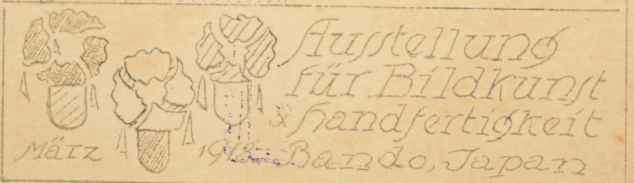 Ausstellung
für Bildkunst
& Handfertigkeit
März 1918 Bando, Japan